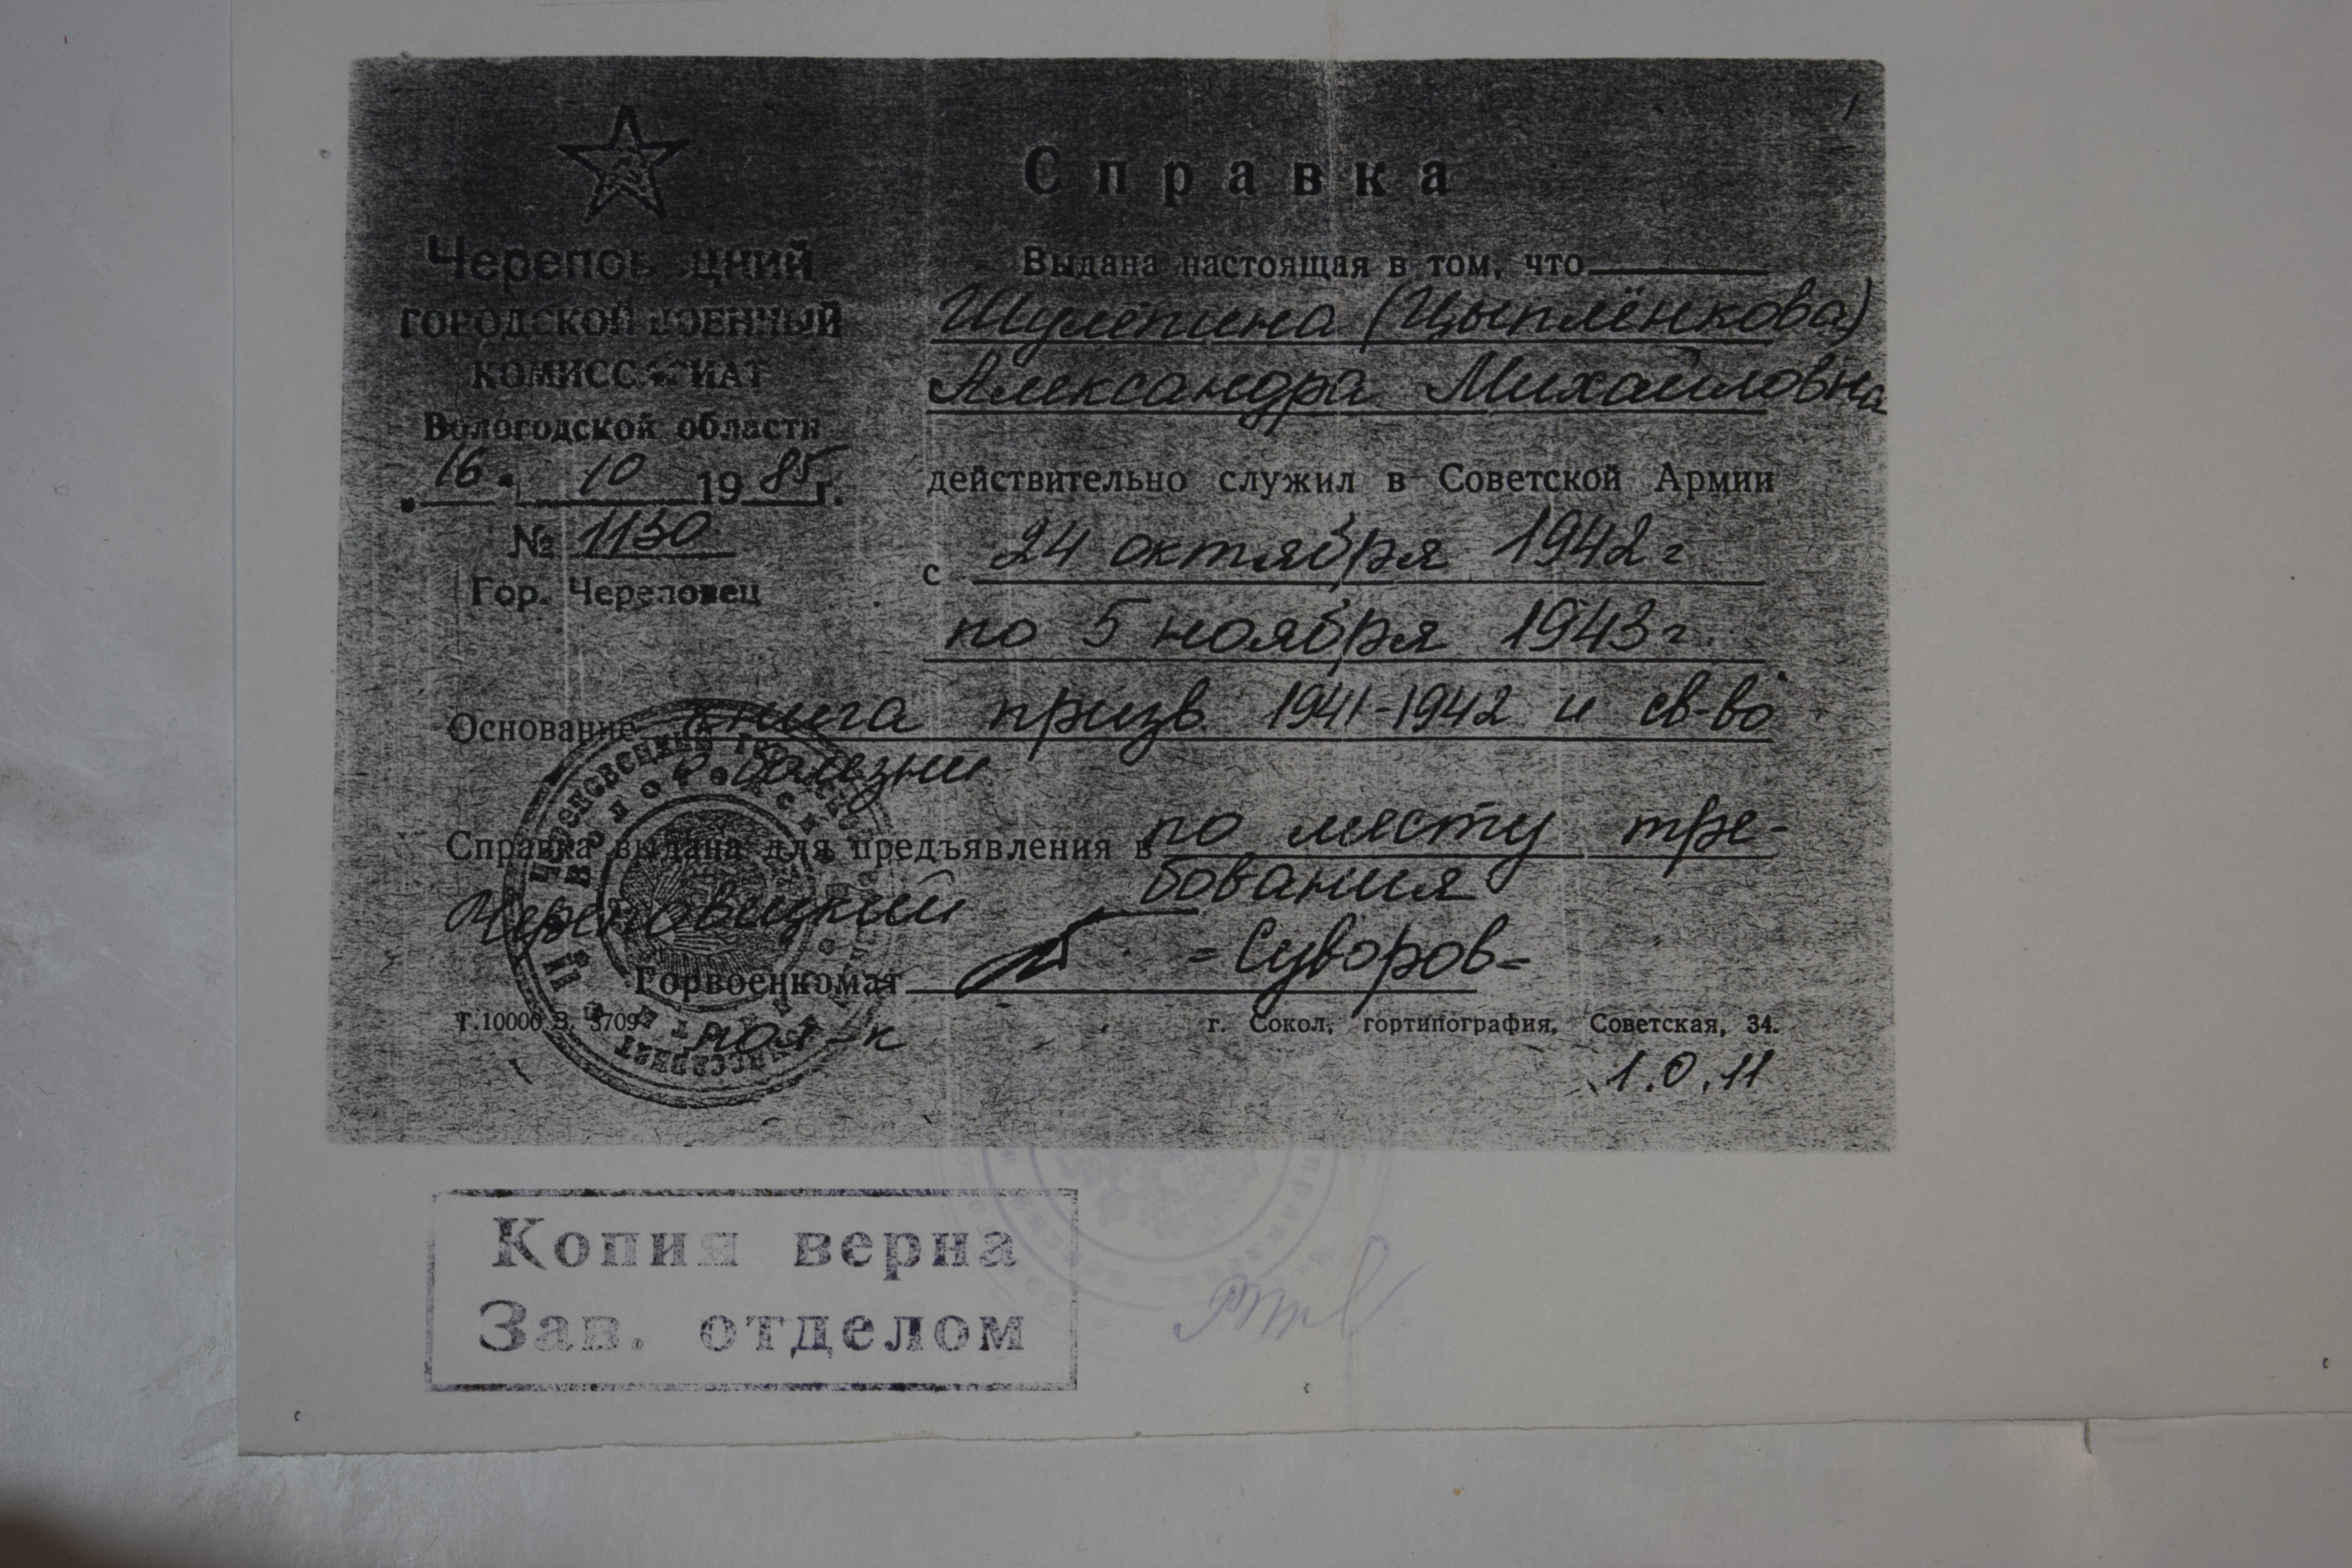 Справка
Череповецкий
ГОРОДСКОЙ ВОЕННЫЙ
КОМИССАРИАТ
Вологодской области
"16" 10 1985 г.
№ 1130
Гор. Череповец
Выдана настоящая в том, что
Шулёпина (Цыплёнкова)
Александра Михайловна
действительно служил в Советской Армии
с 24 октября 1942 г
по 5 ноября 1943 г.
Основание книга призв. 1941-1942 и св-во
о болезни
Справка выдана для предъявления в по месту тре-
бования
Череповецкий
Горвоенкомат =Суворов=
Т. 10000 З. 3709
г. Сокол, гортипография, Советская, 34.
1.0.11
Копия верна
Зав. отделом